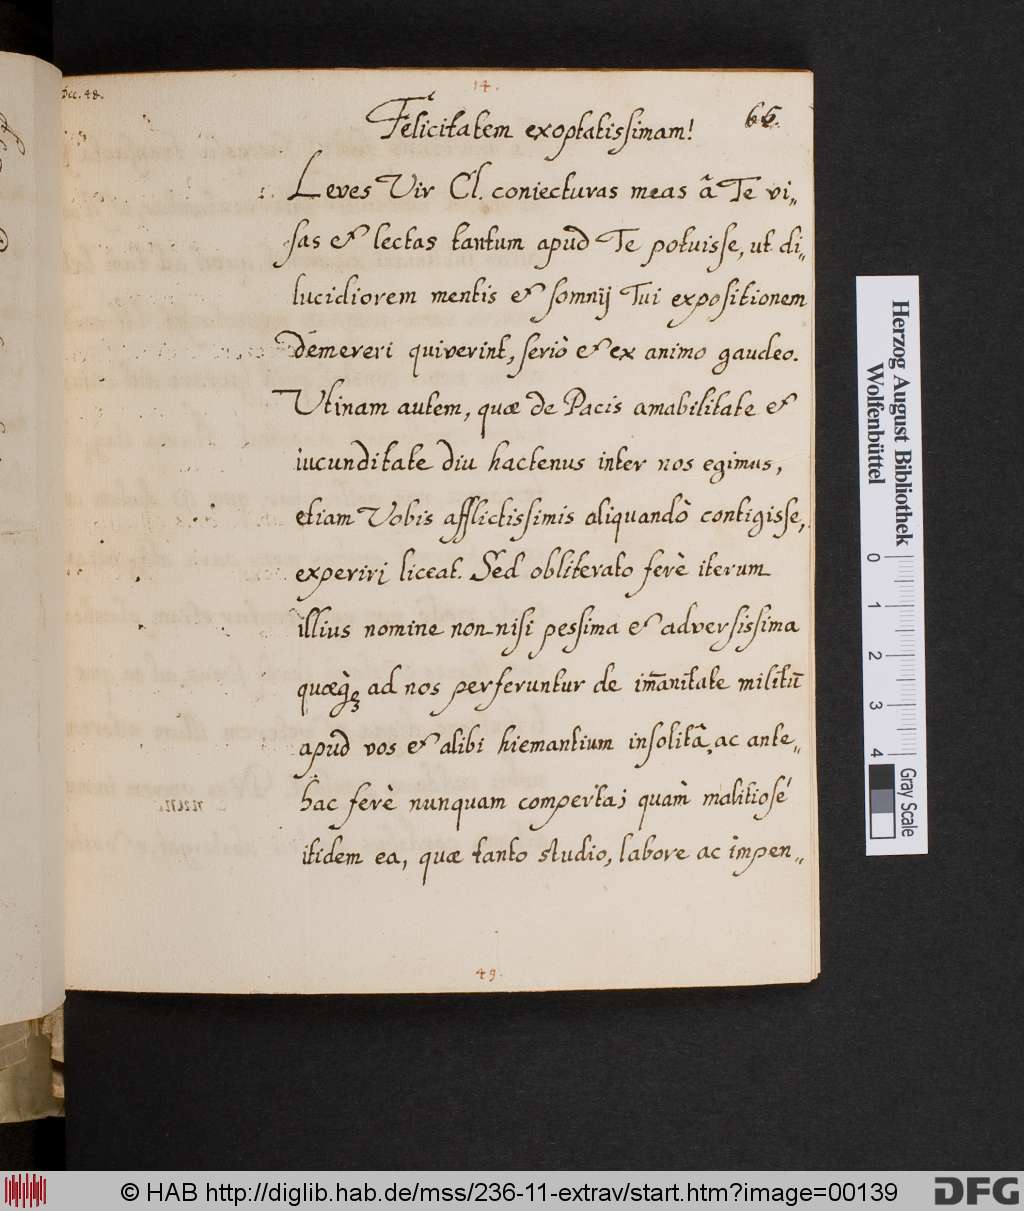 Ecc. 48.
14.
66.
Felicitatem exoptatissimam!
Leves Vir Cl. coniecturas meas â Te vi„
sas et lectas tantum apud Te potuisse, ut di„
lucidiorem mentis et somnij Tui expositionem
demereri quiverint, seriò et ex animo gaudeo.
Utinam autem, quæ de Pacis amabilitate et
iucunditate diu hactenus inter nos egimus,
etiam Vobis afflictissimis aliquandò contigisse,
experiri liceat. Sed obliterato ferè iterum
illius nomine non nisi pessima et adversissima
quæq3 ad nos perferuntur de im̃anitate militũ
apud vos et alibi hiemantium insolitâ, ac ante„
hac ferè nunquam comperta; quàm malitiosé
itidem ea, quæ tanto studio, labore ac impen„
49.
Herzog August Bibliothek
Wolfenbüttel
0 1 2 3 4
Gray Scale
© HAB http://diglib.hab.de/mss/236-11-extrav/start.htm?image=00139
DFG